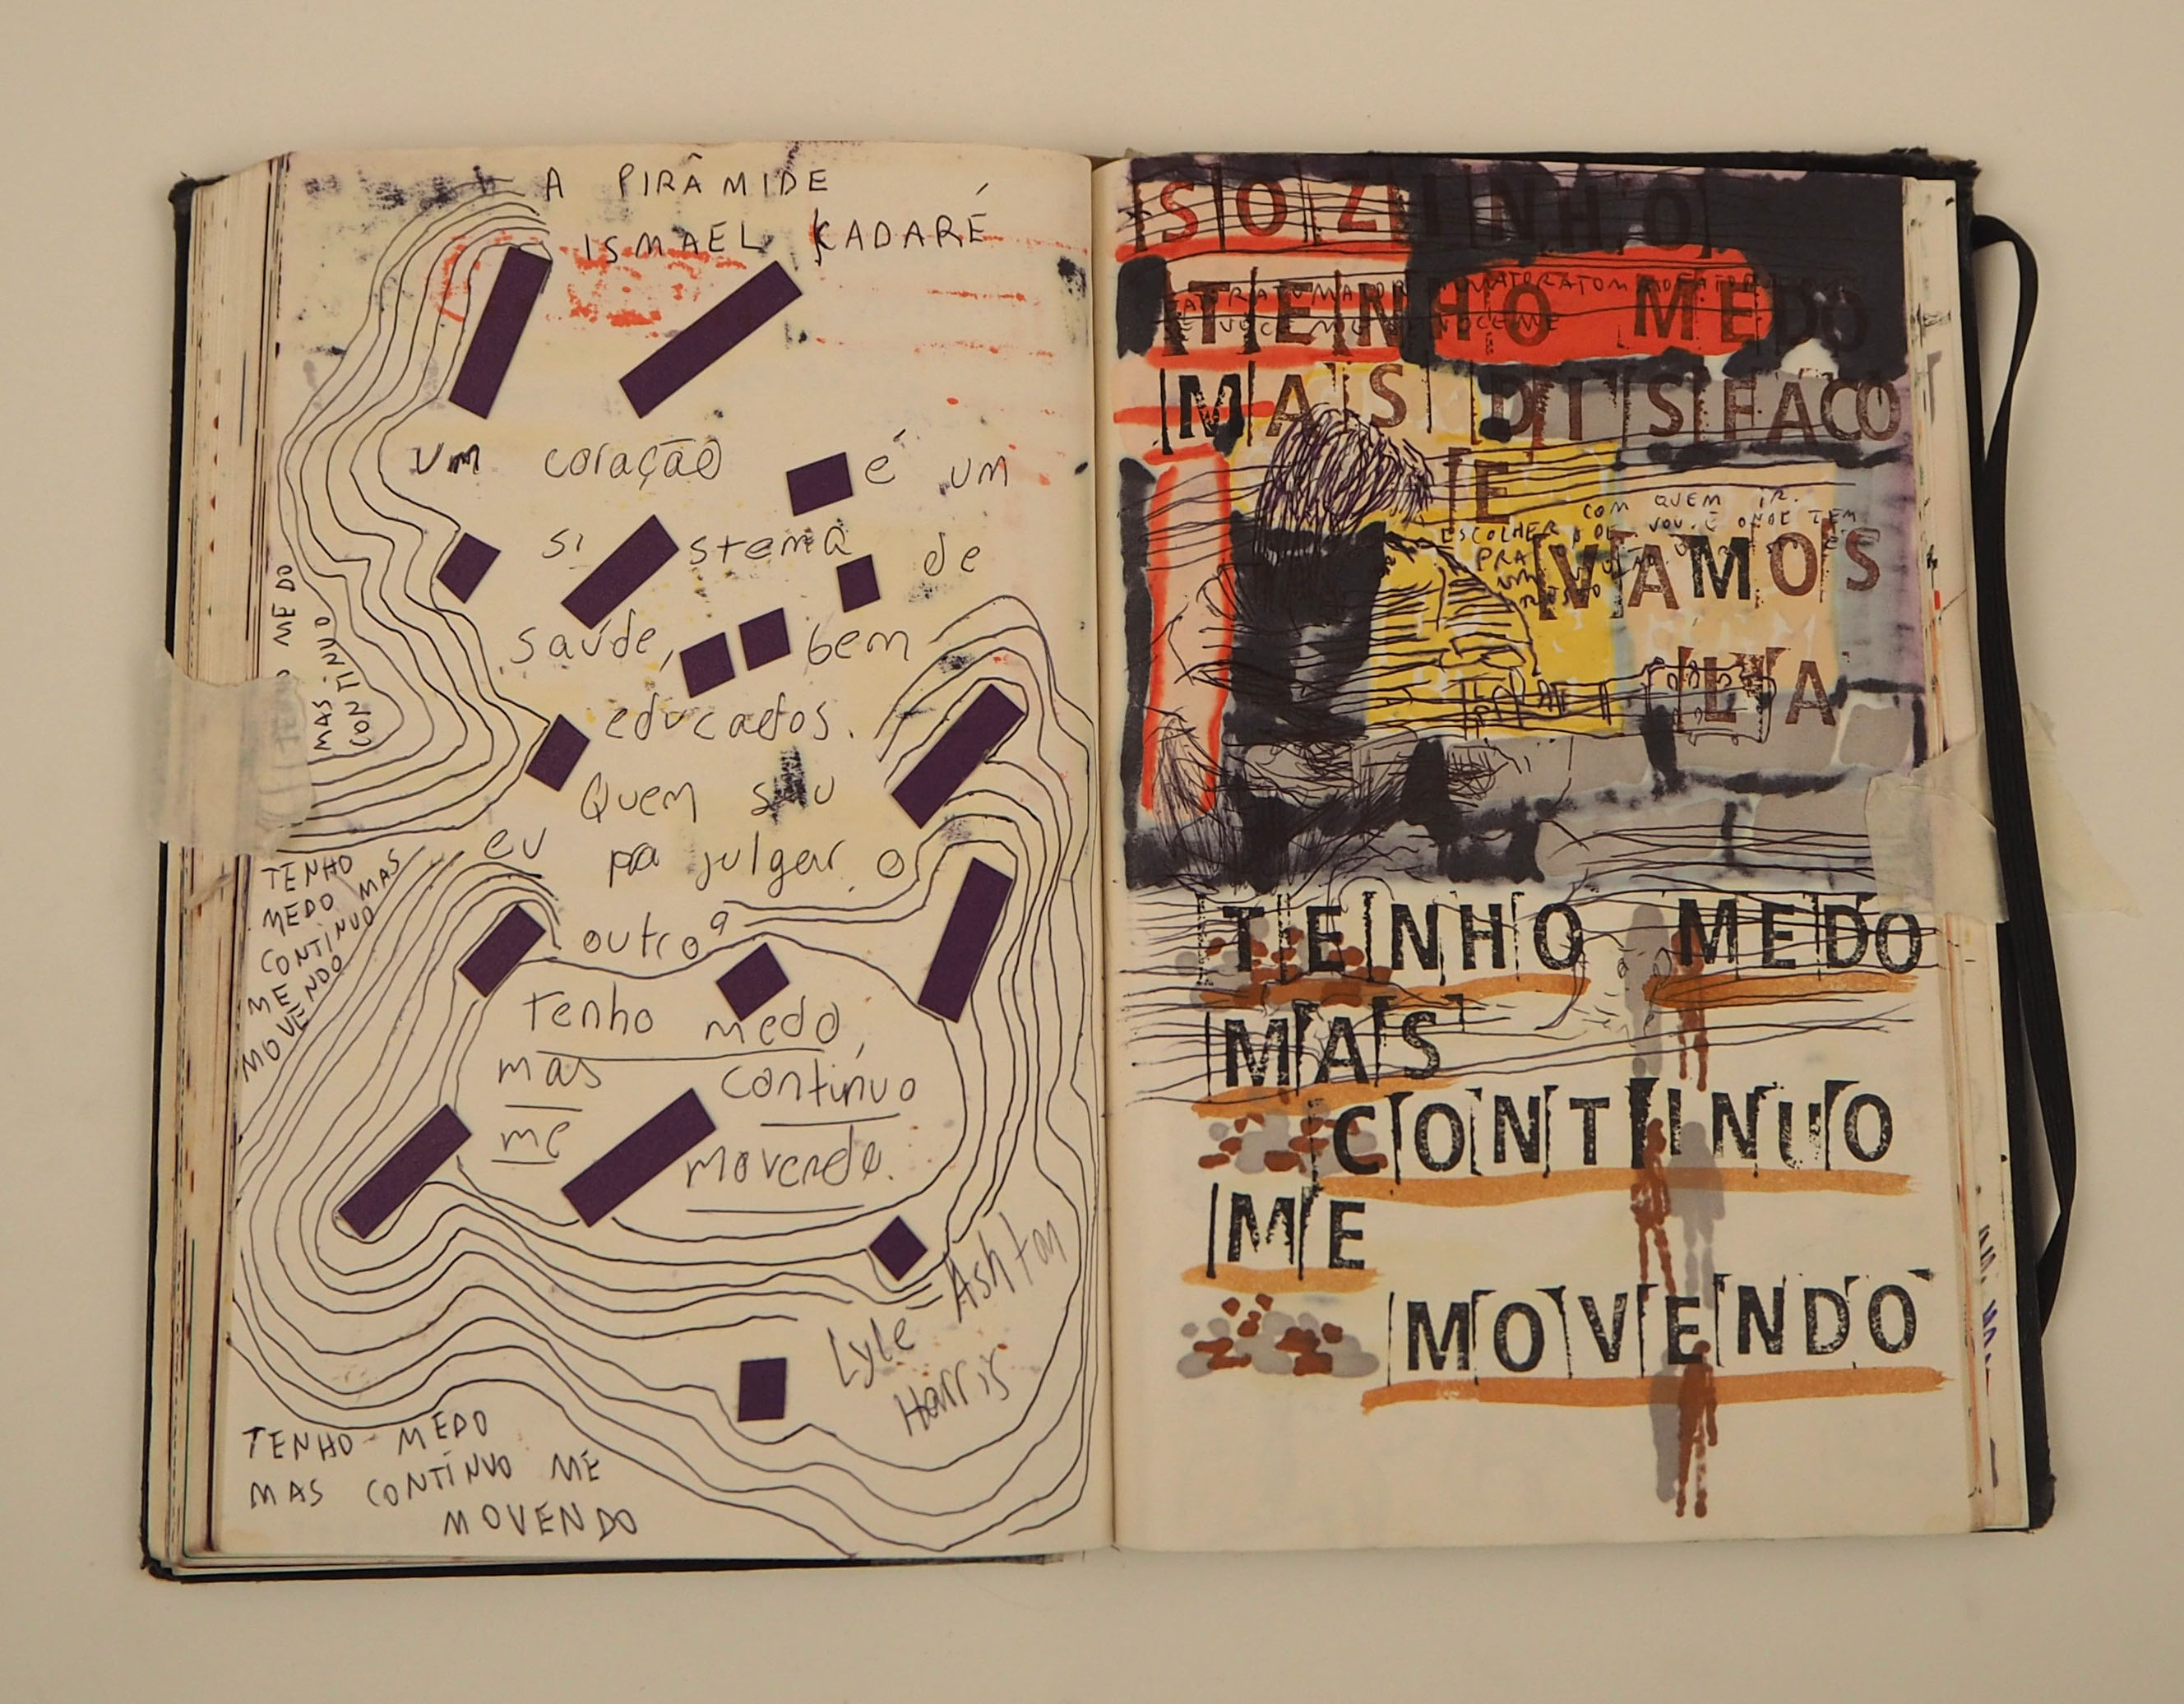 A PIRÂMIDE
ISMAEL KADARÉ
um coração é um
sistema de
saúde, bem
educados.
Quem sou
eu pra julgar o
outro?
tenho medo,
mas continuo
me movendo.
MEDO
MAS
CONTINUO
TENHO
MEDO MAS
CONTINUO
ME
MOVENDO
Lyle Ashton
Harris
TENHO MEDO
MAS CONTÍNUO ME
MOVENDO
SOZINHO
TENHO MEDO
MAS DISFAÇO
E
COM QUEM IR.
ESCOLHER
VOU. É ONDE TEM
PRA
VAMOS
LA
TENHO MEDO
MAS
CONTINUO
ME
MOVENDO